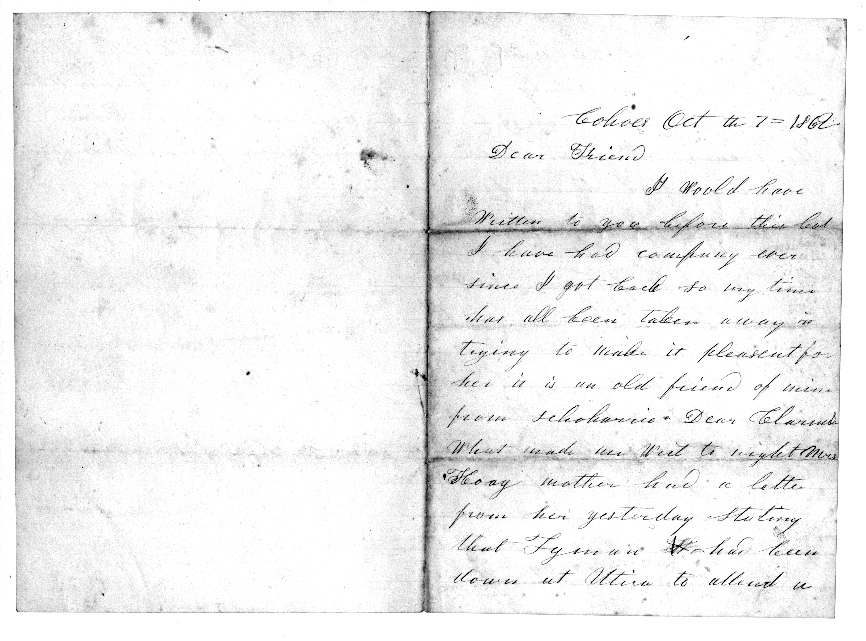 Cohoes Oct th 7 = 1862
Dear Friend
I Would have
Written to you before this but
I have had company ever
since I got back so my time
has all been taken away in
trying to make it pleasent fo
her it is an old friend of mine
from Schoharrie Dear
What made me to night Mrs
Hoag mother had a letter
from her yesterday Stating
that Lyman had been
down at Utica to attend a